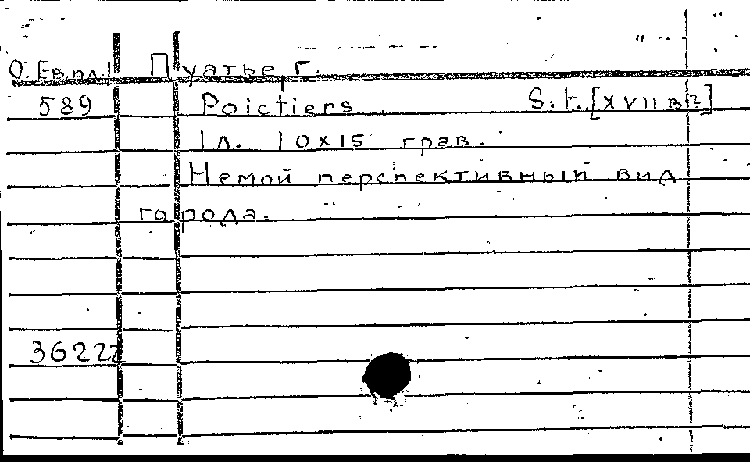 О. Ев.пл. Пуатье г.
589 Poictiers S. t. [XVII в.?]
1 л. 10x15 грав.
Немой перспективный вид
города.
36222